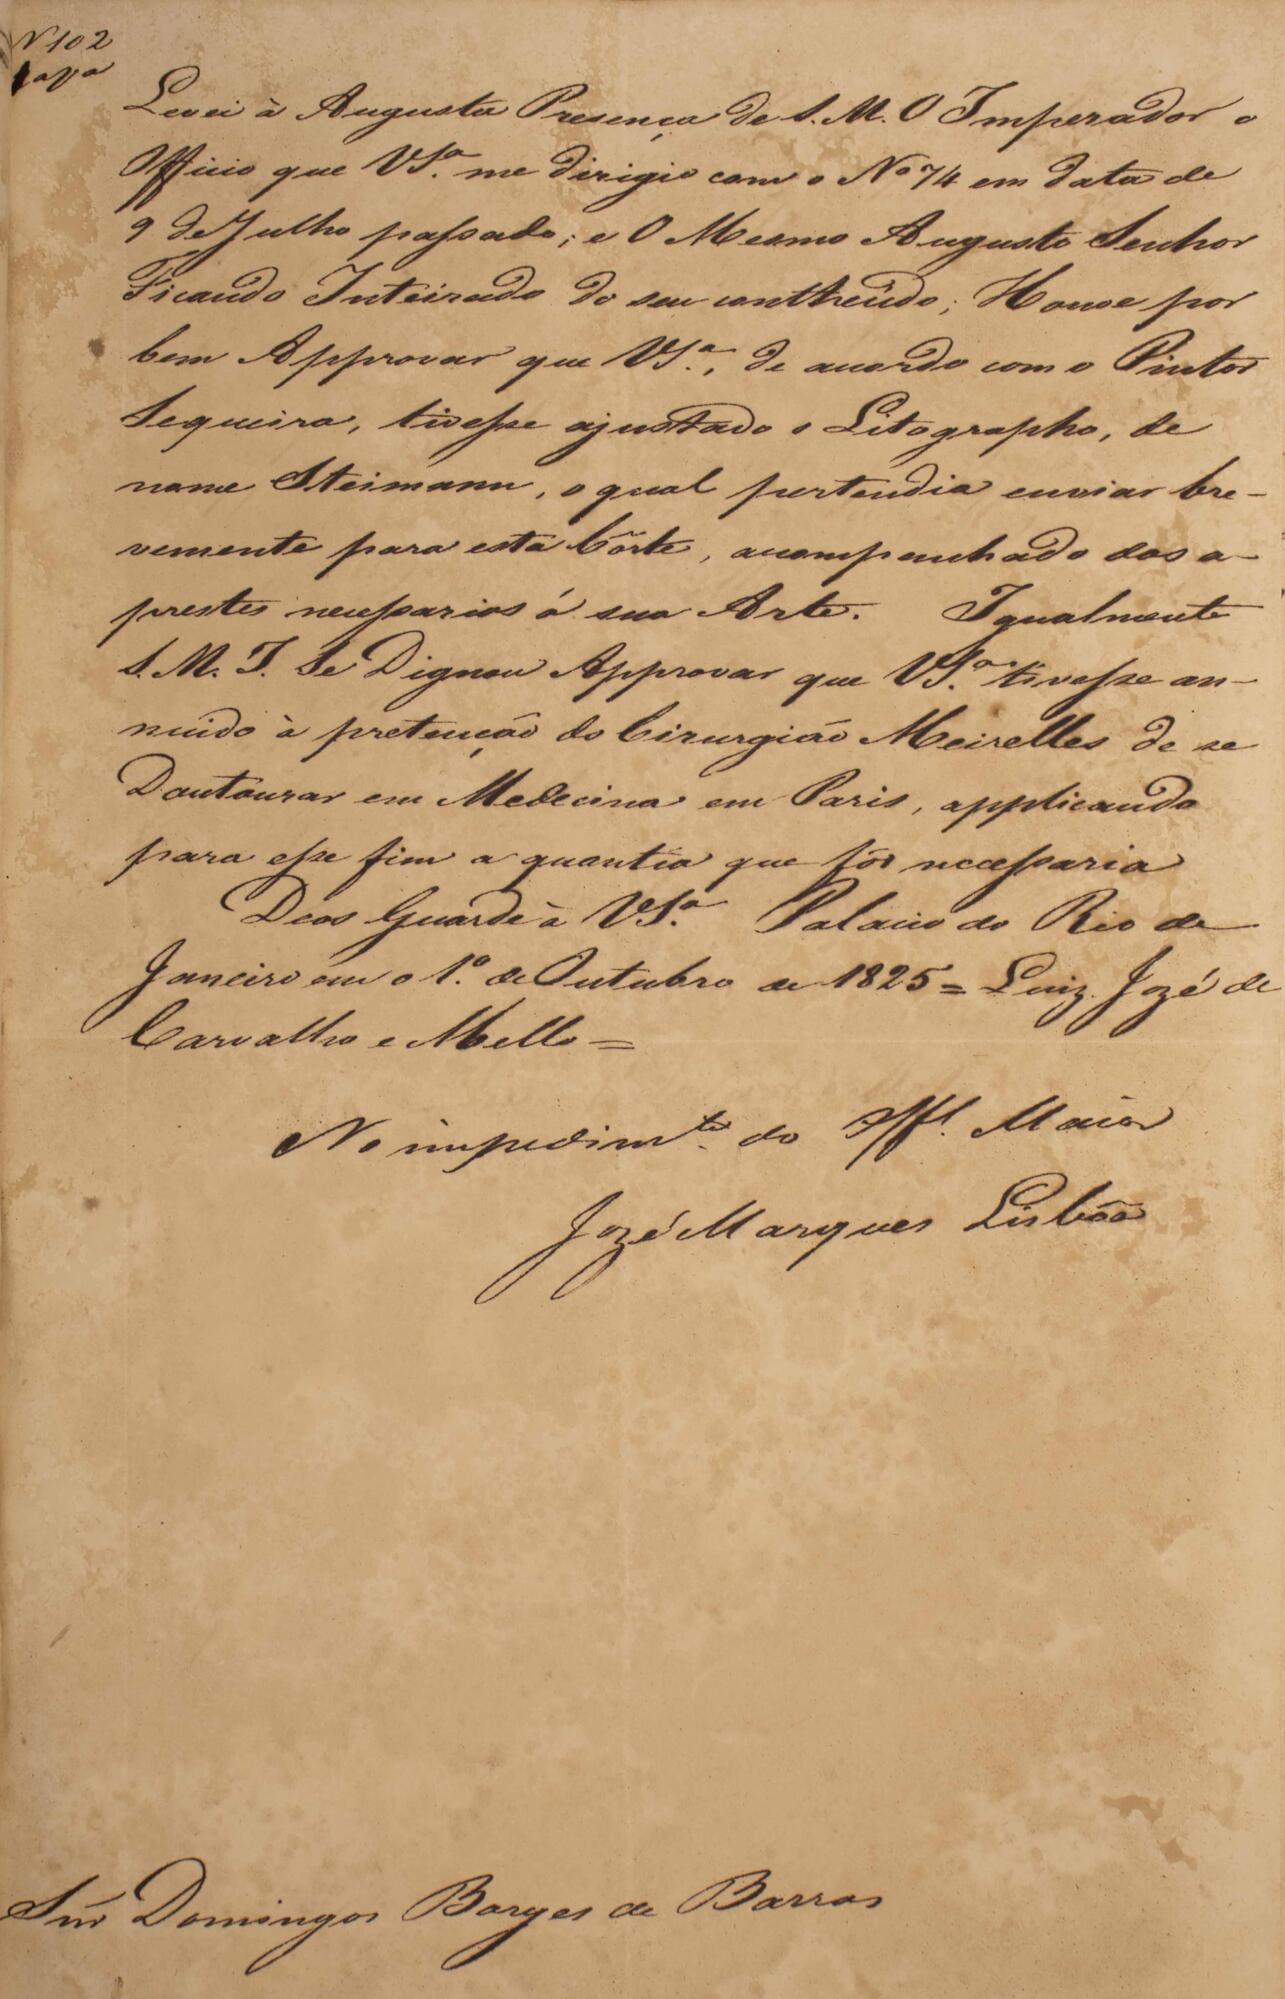 N 102
Levei à Augusta Presença de S. M. O Imperador o
Officio que VSª. me dirigio com o Nº 74 em data de
9 de Julho passado; e O Mesmo Augusto Senhor
Ficando Inteirado do seu contheúdo; Houve por
bem Approvar que VSª., de acordo com o Pintor
Sequeira, tivesse ajustado o Litographo, de
nome Steimann, o qual pertendia enviar bre-
vemente para esta Côrte, acompanhado dos a-
prestes necessarios á sua Arte. Igualmente
S. M. I. Se Dignou Approvar que VSª. tivesse an-
nuido à pretenção do Cirurgião Meirelles de se
Doutourar em Medecina em Paris, applicando
para esse fim a quantia que fôr necessaria
Deos Guarde à VSª. Palacio do Rio de
Janeiro em o 1º. de Outubro de 1825 = Luiz José de
Carvalho e Mello =
No impedimto. do Offl. Maior
José Marques Lisbôa
Snr Domingos Borges de Barros